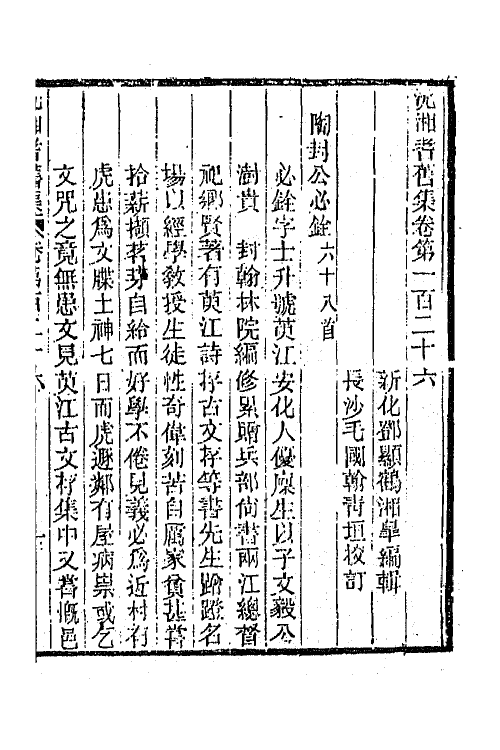 沅湘耆舊集卷第一百二十六
新化鄧顯鶴湘臯編輯
長沙毛國翰青垣校訂
陶封公必銓六十八首
必銓字士升號萸江安化人優廩生以子文毅公
澍貴　封翰林院編修累贈兵部尚書兩江總督
祀鄉賢著有萸江詩存古文存等書先生蹭蹬名
場以經學教授生徒性奇偉刻苦自厲家貧甚嘗
拾薪擷茗芽自給而好學不倦見義必爲近村有
虎患爲文牒土神七日而虎遯鄰有屋病祟或乞
文咒之竟無患文見萸江古文存集中又嘗慨邑